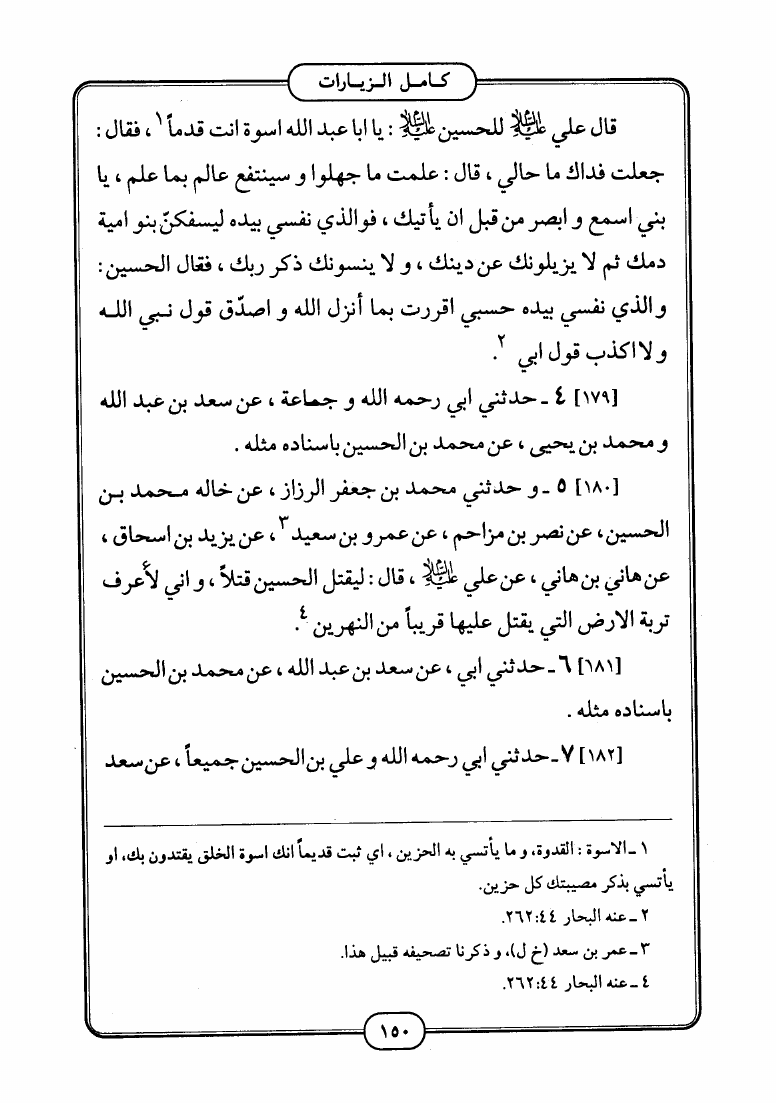 كامل الزيارات
قال علي عليه السلام للحسين عليه السلام : يا ابا عبد الله اسوة انت قدماً ١ ، فقال :
جعلت فداك ما حالي ، قال : علمت ما جهلوا و سينتفع عالم بما علم ، يا
بني اسمع و ابصر من قبل ان يأتيك ، فوالذي نفسي بيده ليسفكنّ بنو امية
دمك ثم لا يزيلونك عن دينك ، و لا ينسونك ذكر ربك ، فقال الحسين :
والذي نفسي بيده حسبي اقررت بما أنزل الله و اصدّق قول نبي الله
و لا اكذب قول ابي ٢.
[١٧٩] ٤ ـ حدثني ابي رحمه الله و جماعة ، عن سعد بن عبد الله
و محمد بن يحيى ، عن محمد بن الحسين باسناده مثله .
[١٨٠] ٥ ـ و حدثني محمد بن جعفر الرزاز ، عن خاله محمد بن
الحسين، عن نصر بن مزاحم ، عن عمرو بن سعيد ٣ ، عن يزيد بن اسحاق ،
عن هاني بن هاني ، عن علي عليه السلام ، قال : ليقتل الحسين قتلاً ، و اني لأعرف
تربة الارض التي يقتل عليها قريباً من النهرين ٤.
[١٨١] ٦ ـ حدثني ابي ، عن سعد بن عبد الله ، عن محمد بن الحسين
باسناده مثله .
[١٨٢] ٧ ـ حدثني ابي رحمه الله و علي بن الحسين جميعاً ، عن سعد
١ ـ الاسوة : القدوة، و ما يأتسي به الحزين ، اي ثبت قديماً انك اسوة الخلق يقتدون بك، او
يأتسي بذكر مصيبتك كل حزين.
٢ ـ عنه البحار ٤٤:٢٦٢.
٣ ـ عمر بن سعد (خ ل)، و ذكرنا تصحيفه قبيل هذا.
٤ ـ عنه البحار ٤٤:٢٦٢.
١٥٠